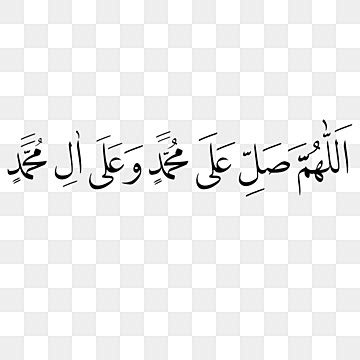 اَللّٰهُمَّ صَلِّ عَلَى مُحَمَّدٍ وَعَلَى اٰلِ مُحَمَّدٍ